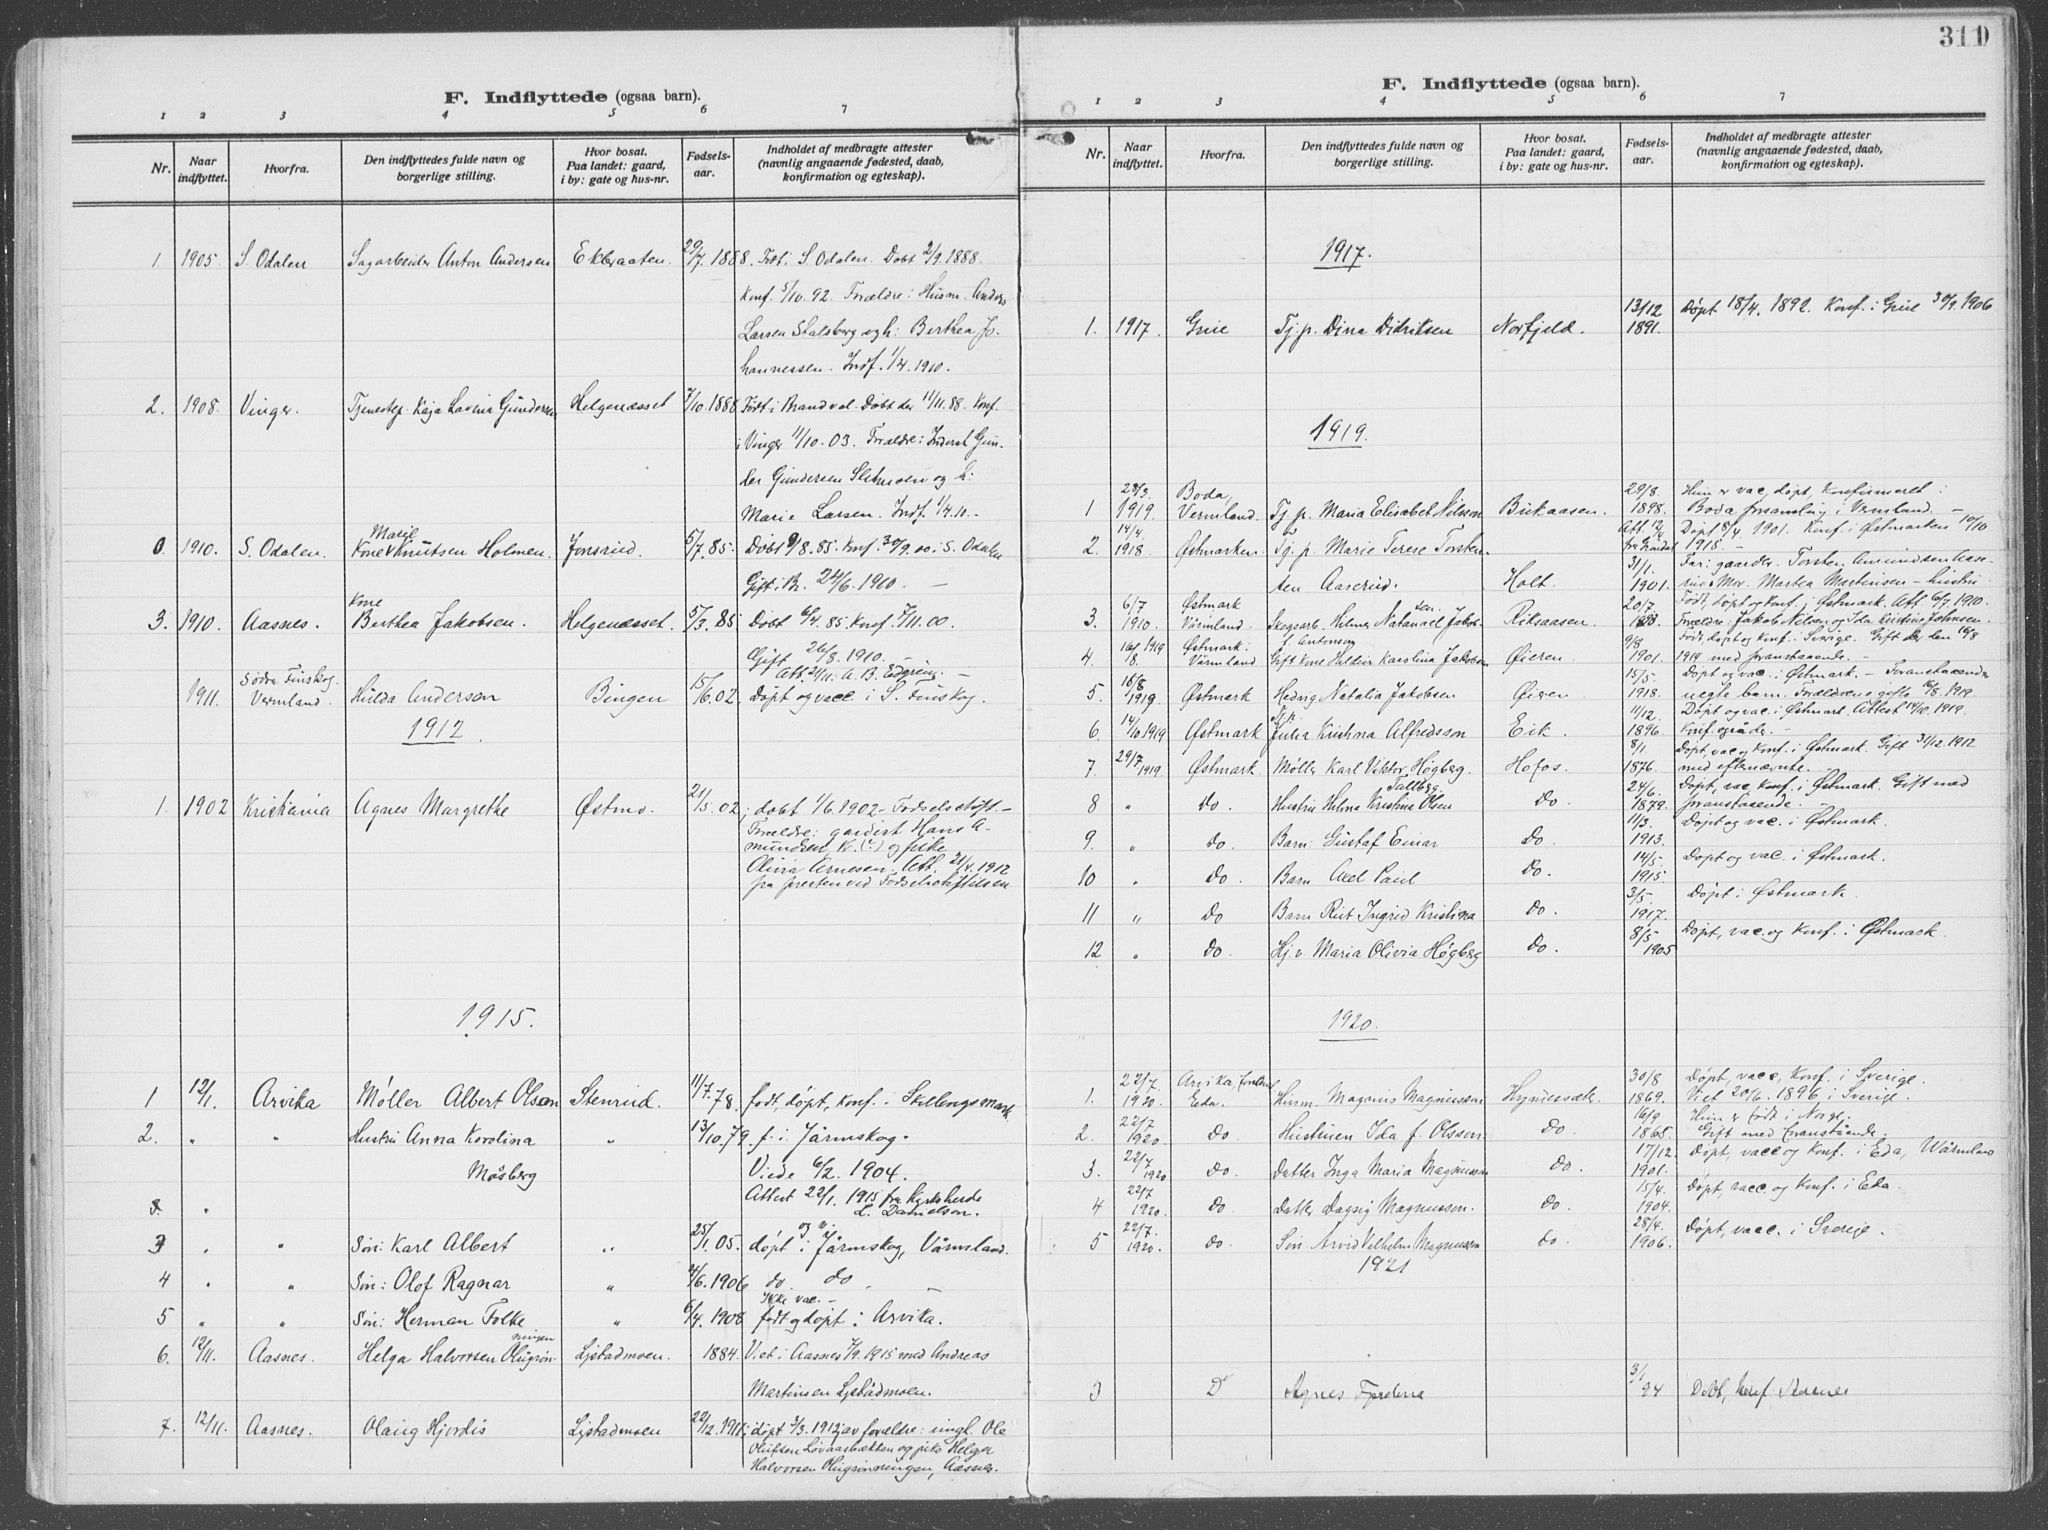 311
F. Indflyttede (ogsaa barn).
1 2 3 4 5 6 7
Nr. Naar indflyttet. Hvorfra. Den indflyttedes fulde navn og borgerlige stilling. Hvor bosat. Paa landet: gaard, i by: gate og hus-nr. Fødsels-aar. Indholdet af medbragte attester (navnlig angaaende fødested, daab, konfirmation og egteskap).
1 1905 S. Odalen Sagarbeider Anton Andersen Ekbraaten 29/7 1888. Født i S. Odalen. Døbt 2/9 1888.
Konf. 5/10. 92. Forældre: Husm. Anders
Larsen Stalsberg og h: Berthea Jo-
hannessen. Indf. 1/4. 1910.
2. 1908. Vinger. Tjenestep. Kaja Lovise Gundersen Helgenæsset 7/10. 1888 Født i Brandval. Døbt der 11/11. 88. Konf.
i Vinger 11/10. 03. Forældre: Inderst Gun-
der Gundersen Sletmoen og h:
Marie Larsen. Indf. 1/4. 10. -
0. 1910. S. Odalen. Kone Marie Knutsen Holmen. Jonsrud. 5/7. 85. Døbt 9/8. 85. Konf. 30/9. 00 i S. Odalen
Gift i Br. 24/6. 1910. -
3. 1910. Aasnes. Kone Berthea Jakobsen. Helgenæsset. 5/3. 85. Døbt 6/4. 85. Konf. 7/11. 00.
Gift 26/8. 1910. -
Att. 21/11. A. B. Edgren.
1911. Södra Finskog. Vermland. Hulda Anderson Bingen 15/6. 02. Døpt og vacc. i S. Finskog.
1912.
1. 1902 Kristiania Agnes Margrethe Østmo. 21/5. 02. døbt 1/6. 1902 - Fødselsstift. -
Forældre: gardist Hans A-
mundsen K. (?) og pike
Olivia Arnesen. Att. 21/4. 1912
fra presten ved Fødselsstiftelsen
1915.
1 12/1. Arvika Møller Albert Olsson Stenrud. 11/7. 78. født, døpt, konf. i Skillingsmark
2. " " Hustru Anna Karolina Mosberg " 13/10. 79. f. i Järnskog.
Viede 6/2. 1904.
Attest 22/1. 1915 fra Kyrkoherde
L. Danielson.
3. "
3 " " Søn: Karl Albert " 25/1. 05. døpt og v. i Järnskog, Värmland.
4 " " Søn: Olof Ragnar " 4/6. 1906 do do -
Ikke vac. -
5 " " Søn: Herman Folke " 6/4. 1908 født og døpt i Arvika.
6. 12/11. Aasnes. Helga Halvorsen Olugrønningen Ljstadmoen. 1884. Viet i Aasnes 7/9. 1915 med Andreas
Martinsen Ljstadmoen.
7. 12/11. Aasnes. Olaug Hjørdis Ljstadmoen 22/12. 1911; døpt 3/3. 1912; av foreldre: ungk. Ole
Olufsen Løvaasbækken og pike Helga
Halvorsen Olugrønningen, Aasnes.
F. Indflyttede (ogsaa barn).
1 2 3 4 5 6 7
Nr. Naar indflyttet. Hvorfra. Den indflyttedes fulde navn og borgerlige stilling. Hvor bosat. Paa landet: gaard, i by: gate og hus-nr. Fødsels-aar. Indholdet af medbragte attester (navnlig angaaende fødested, daab, konfirmation og egteskap).
1917.
1. 1917. Grue Tj. p. Dina Didriksen Norfjeld. 13/12 1891. Døpt 18/4. 1892. Konf. i Grue 30/9. 1906
1919.
1 28/3. 1919. Boda, Vermland. Tj. p. Maria Elisabet Nilsson Bukaasen. 29/8. 1898. Hun er vac, døpt, konfirmeret i
Boda forsamling i Vermland. -
2. 14/4. 1918. Østmarken Tj. p. Marie Terese Torsten-
sen Aaserud. Holt. 31/1. 1901. Døpt 8/4. 1901. Konf. i Østmarken 10/10
1915. -
Far: gaardbr. Torsten Amundsen Aase-
rud Mor. Martea Martinsen - hustru
3. 6/7 1910. Østmark Värmland. Skogsarb. Hilmer Natanael Jakobsen. Ritaasen. 20/7. Født, døpt og konf. i Østmark. Att. 6/7. 1910.
Forældre: Jakob Nilson og Ida Kristina Johnsen.
4. 16/8. 1919 Østmark. Värmland Gift kone Hildur Karolina Jakobsen f. Antonsen Øieren. 9/8 1901. Født, døpt og konf. i Sverige. Gift der den 16/8
1919 med foranstaaende. -
5. 16/8 1919. Østmark Hedvig Natalia Jakobsen Øieren 15/5. 1918. Døpt og vac. i Østmark. - Foranstaaendes
uegte barn. Forældrene gifte 16/8. 1919.
6. 14/10. 1919 Østmark Tj.p. Julia Kristina Alfredsson Eik. 11/12. 1896. Døpt og vac. i Østmark. Attest 14/10. 1919.
7. 29/7. 1919. Østmark. Møller Karl Viktor Høgberg. Hofos. 8/1. 1876. Døpt, vac og konf. i Østmark. Gift 31/12. 1912
med efternævnte. -
8 " do. Hustru Hilma Kristine Olsen Tallberg. do. 24/6. 1879. Døpt, vac, konf. i Østmark. Gift med
foranstaaende. -
9. " do. Barn: Gustaf Einar do. 11/3. 1913. Døpt og vac. i Østmark.
10 " do. Barn Axel Paul do. 14/5. 1915. Døpt og vac. i Østmark.
11 " do Barn Rut Ingrid Kristina do. 3/5. 1917. Døpt i Østmark.
12 " do Hj. v. Maria Olivia Høgberg do. 8/5 1905 Døpt, vac. og konf. i Østmark.
1920.
1. 22/7. 1920. Arvika, Eda. Husm. Magnus Magnusson 30/8 1869. Døpt, vacc, konf. i Sverige.
Viet 20/6. 1896 i Sverige.
2. 22/7 1920. do. Hustruen Ida f. Olsson do. 16/9 1865. Hun er født i Norge.
Gift med foranstående.
3. 22/7 1920 do. Datter Inga Maria Magnusson do. 17/12 1901. Døpt, vacc og konf. i Eda, Wärmland
4 22/7 1920. do. Datter Dagny Magnusson. do. 15/4. 1904. Døpt, vacc. og konf. i Eda.
5 22/7. 1920. do. Søn Arvid Vilhelm Magnusson do. 28/4. 1906. Døpt, vacc. i Sverige.
1921
3 Do Agnes 3/1 94 Døbt, konf. i Aasnes